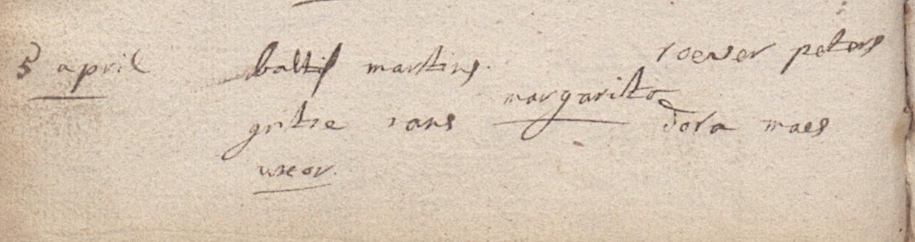 5 april baltis martins roever peters
gritie ians margarita dora maes
uxor